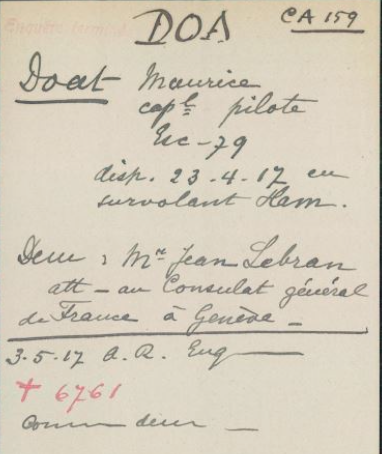 DOA
CA 159
Enquête terminée
Doat Maurice
cap^l pilote
Esc - 79
disp. 23.4.17 en
survolant Ham.
Dem : M^r Jean Lebran
att - au Consulat général
de France à Genève -
3.5.17 A.R. Enq
+ 6761
Comm dem -